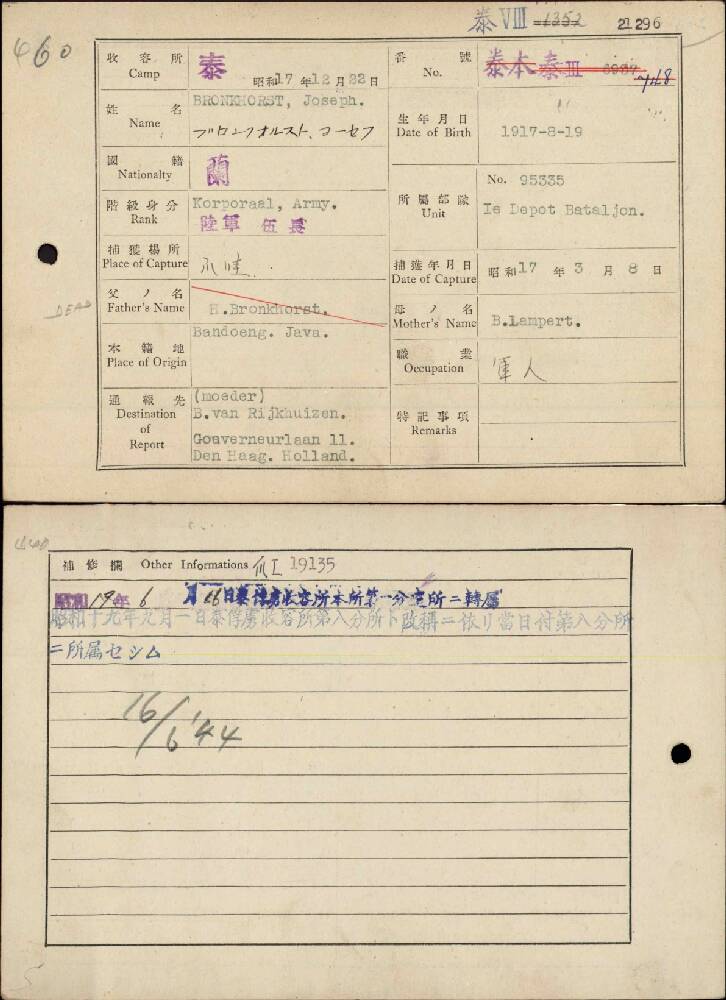 泰VIII 1352 21 296
460
收容所 Camp 泰 昭和17年12月22日
番號 No. 泰本泰III
姓名 Name BRONKHORST, Joseph.
ブロンクオルスト、ヨーセフ
生年月日 Date of Birth 1917-8-19
國籍 Nationalty 蘭
階級身分 Rank Korporaal, Army.
陸軍 伍長
所屬部隊 Unit No. 95335
Ie Depot Bataljon.
捕獲場所 Place of Capture 爪哇.
捕獲年月日 Date of Capture 昭和17年3月8日
DEAD
父ノ名 Father's Name H.Bronkhorst.
母ノ名 Mother's Name B.Lampert.
本籍地 Place of Origin Bandoeng. Java.
職業 Occupation 軍人
通報先 Destination of Report (moeder)
B.van Rijkhuizen.
Gouverneurlaan 11.
Den Haag. Holland.
特記事項 Remarks
補修欄 Other Informations 爪I 19135
昭和19年6月16日泰俘虜收容所本所第一分遣所ニ轉屬
昭和十九年九月一日泰俘虜收容所第八分所ト改稱ニ依リ當日付第八分所
ニ所属セシム
16/6 '44